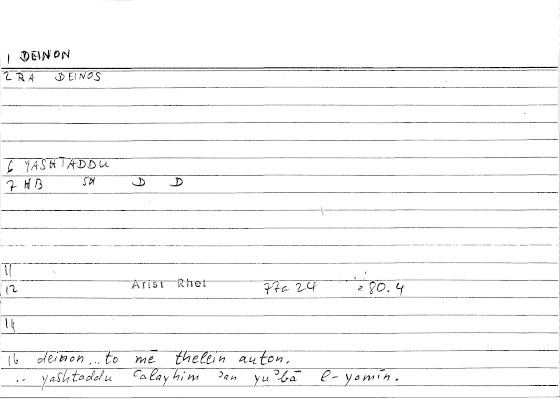 1 DEINON
2 RA DEINOS
6 YASHTADDU
7 HB SH D D
11
12 Arist Rhet 77a 24 = 80.4
14
16 deinon...to mē thelein auton.
.. yashtaddu ʿalayhim ʾan yuʾbā l-yamīn.